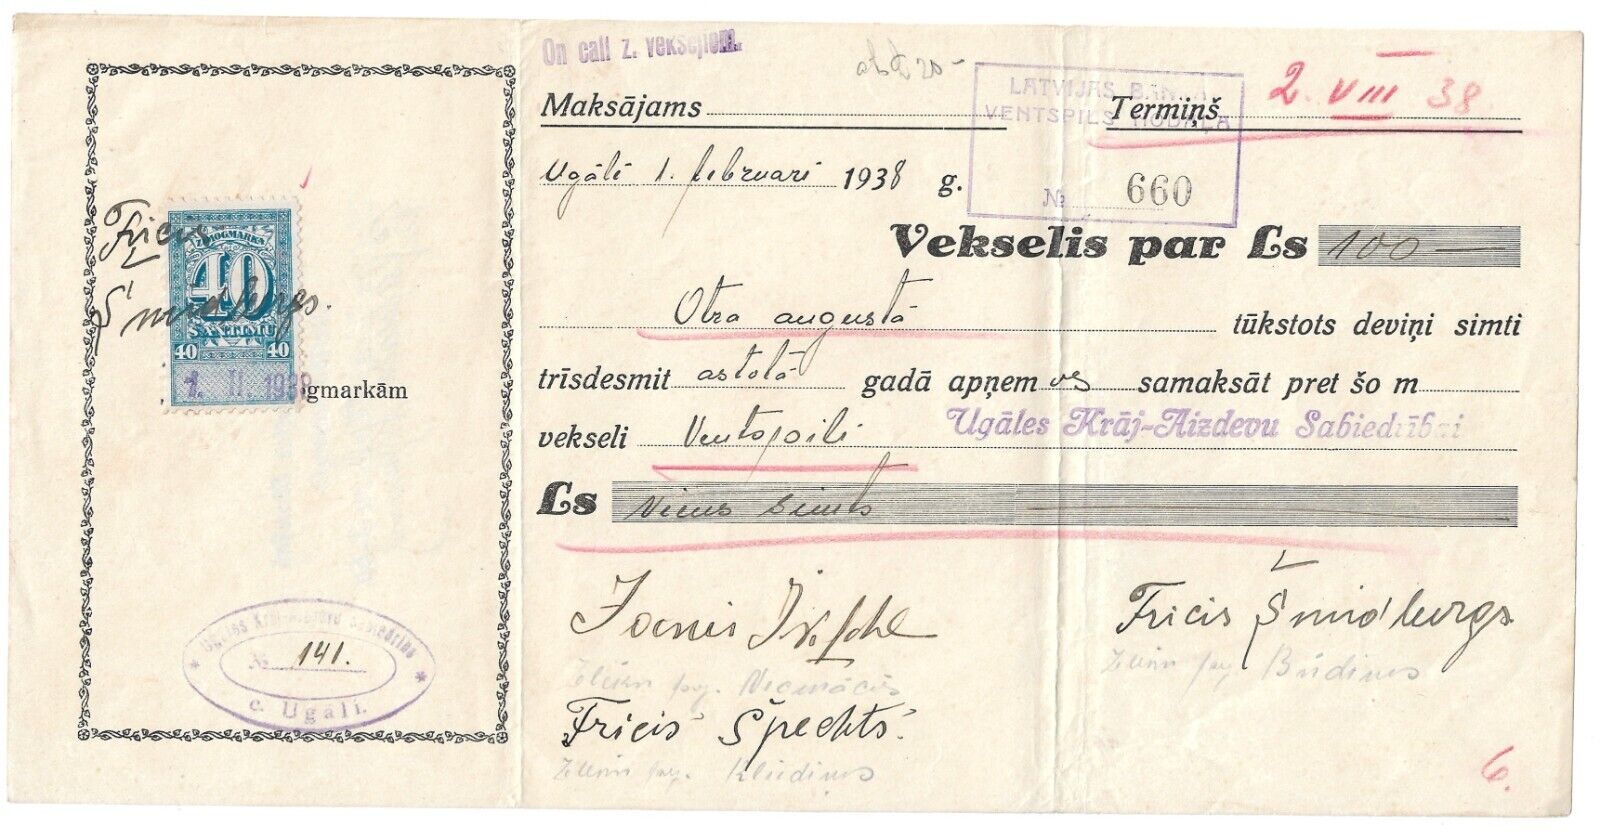 On call z. vekseļiem.
LATVIJAS BANKA
VENTSPILS NODAĻA
№ 660
Maksājams
Termiņš 2. VIII 38.
Ugālē 1. februari 1938 g.
Vekselis par Ls 100 —
Otrā augustā tūkstots deviņi simti
trīsdesmit astotā gadā apņemos samaksāt pret šo m
vekseli Ventspilī Ugāles Krāj-Aizdevu Sabiedrībai
Ls Viens simts
Fricis
Šmidbergs.
ZĪMOGMARKA
40
SANTIMU
40 40
1. II. 1938
gmarkām
Ugāles Krāj-Aizdevu Sabiedrības
№ 141.
c. Ugālē.
Fricis Šmidbergs
Būdiņas
Fricis Špechts.
6.